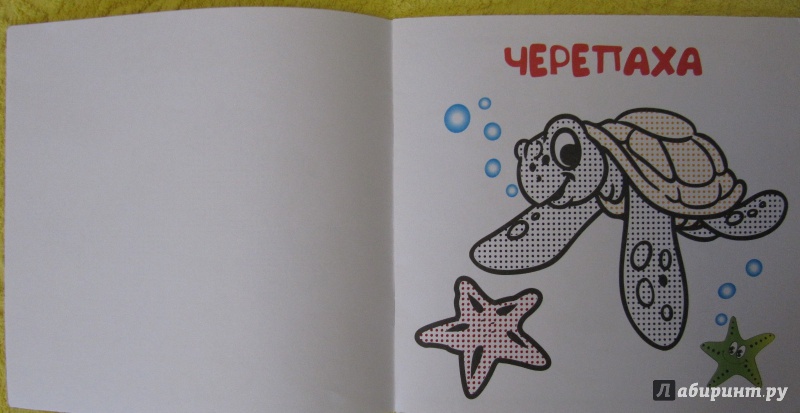 ЧЕРЕПАХА
Лабиринт.ру